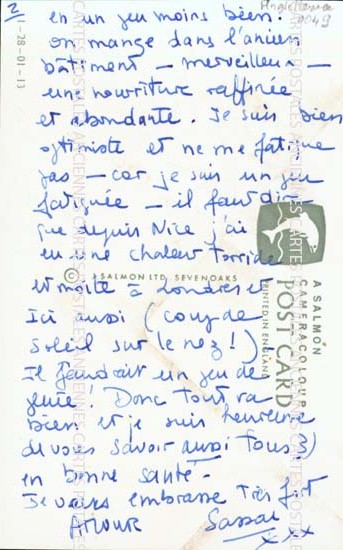 2
en un peu moins bien.
on mange dans l'ancien
bâtiment — merveilleux —
une nourriture raffinée
et abondante. Je suis bien
optimiste et ne me fatigue
pas — car je suis un peu
fatiguée — il faut dire
que depuis Nice j'ai
eu une chaleur torride
et moite à Londres et
Ici aussi (coup de
soleil sur le nez!)
Il faudrait un peu de
pluie! Donc tout va
bien et je suis heureuse
de vous savoir aussi tous 3
en bonne santé.
Je vous embrasse très fort
xxx
Angleterre
0049
-28-01-13
© A SALMON LTD, SEVENOAKS
A SALMON
CAMERACOLOUR
POST CARD
PRINTED IN ENGLAND
CARTES POSTALES ANCIENNES